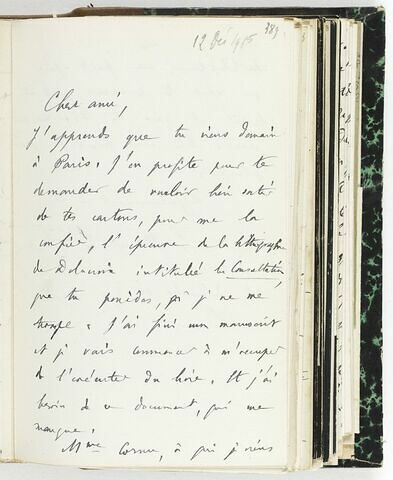 389.
12 Déc 1885
Cher ami,
J'apprends que tu viens demain
à Paris. J'en profite pour te
demander de vouloir bien sortir
de tes cartons, pour me la
confier, l'épreuve de la lithographie
de Delacroix intitulée la Consultation,
que tu possèdes, si je ne me
trompe. J'ai fini mon manuscrit
et je vais commencer à m'occuper
de l'exécution du livre. Et j'ai
besoin de ce document, qui me
manque.
Mme Cornu, à qui je viens